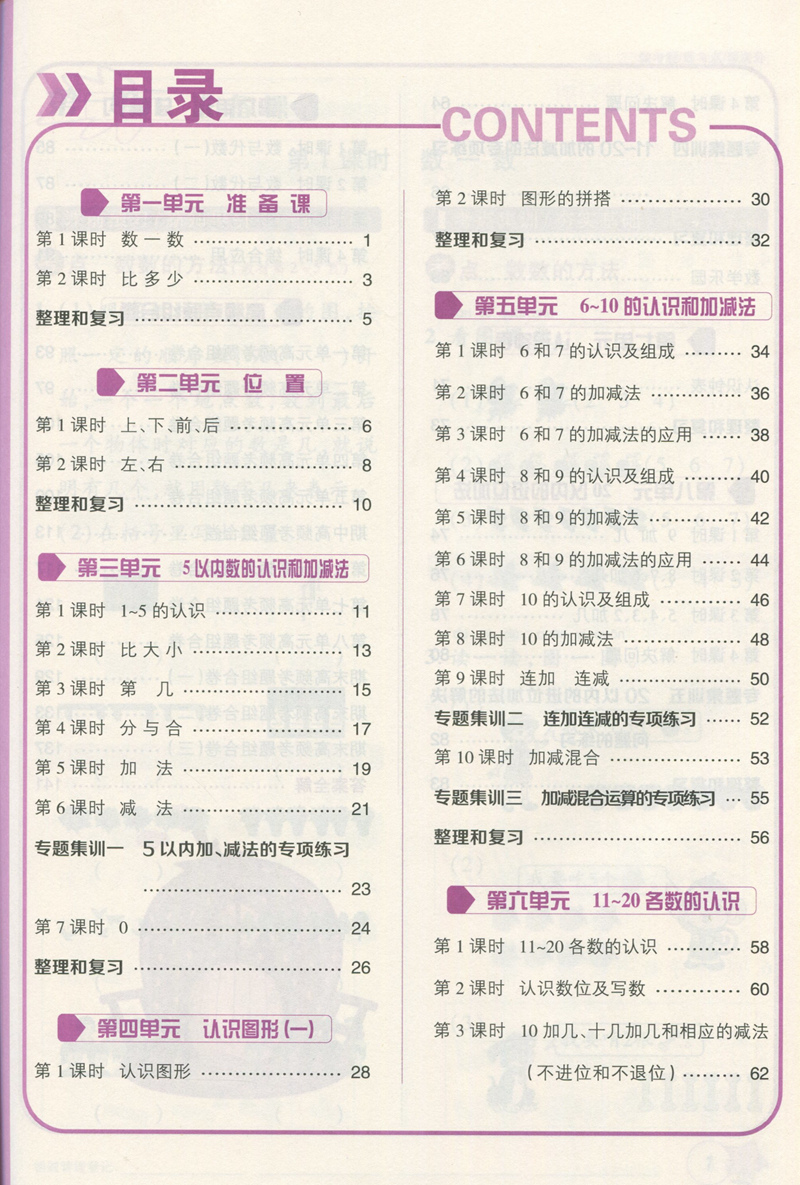 目录
CONTENTS
第一单元 准备课
第1课时 数一数 ………………………… 1
第2课时 比多少 ………………………… 3
整理和复习 ………………………… 5
第二单元 位置
第1课时 上、下、前、后 ………………………… 6
第2课时 左、右 ………………………… 8
整理和复习 ………………………… 10
第三单元 5以内数的认识和加减法
第1课时 1~5的认识 ………………………… 11
第2课时 比大小 ………………………… 13
第3课时 第几 ………………………… 15
第4课时 分与合 ………………………… 17
第5课时 加法 ………………………… 19
第6课时 减法 ………………………… 21
专题集训一 5以内加、减法的专项练习
………………………… 23
第7课时 0 ………………………… 24
整理和复习 ………………………… 26
第四单元 认识图形(一)
第1课时 认识图形 ………………………… 28
第2课时 图形的拼搭 ………………………… 30
整理和复习 ………………………… 32
第五单元 6~10的认识和加减法
第1课时 6和7的认识及组成 ……… 34
第2课时 6和7的加减法 ………… 36
第3课时 6和7的加减法的应用 …… 38
第4课时 8和9的认识及组成 ……… 40
第5课时 8和9的加减法 ………… 42
第6课时 8和9的加减法的应用 …… 44
第7课时 10的认识及组成 ………… 46
第8课时 10的加减法 …………… 48
第9课时 连加 连减 …………… 50
专题集训二 连加连减的专项练习 …… 52
第10课时 加减混合 …………… 53
专题集训三 加减混合运算的专项练习 … 55
整理和复习 ………………………… 56
第六单元 11~20各数的认识
第1课时 11~20各数的认识 ………… 58
第2课时 认识数位及写数 ………… 60
第3课时 10加几、十几加几和相应的减法
(不进位和不退位) ……… 62